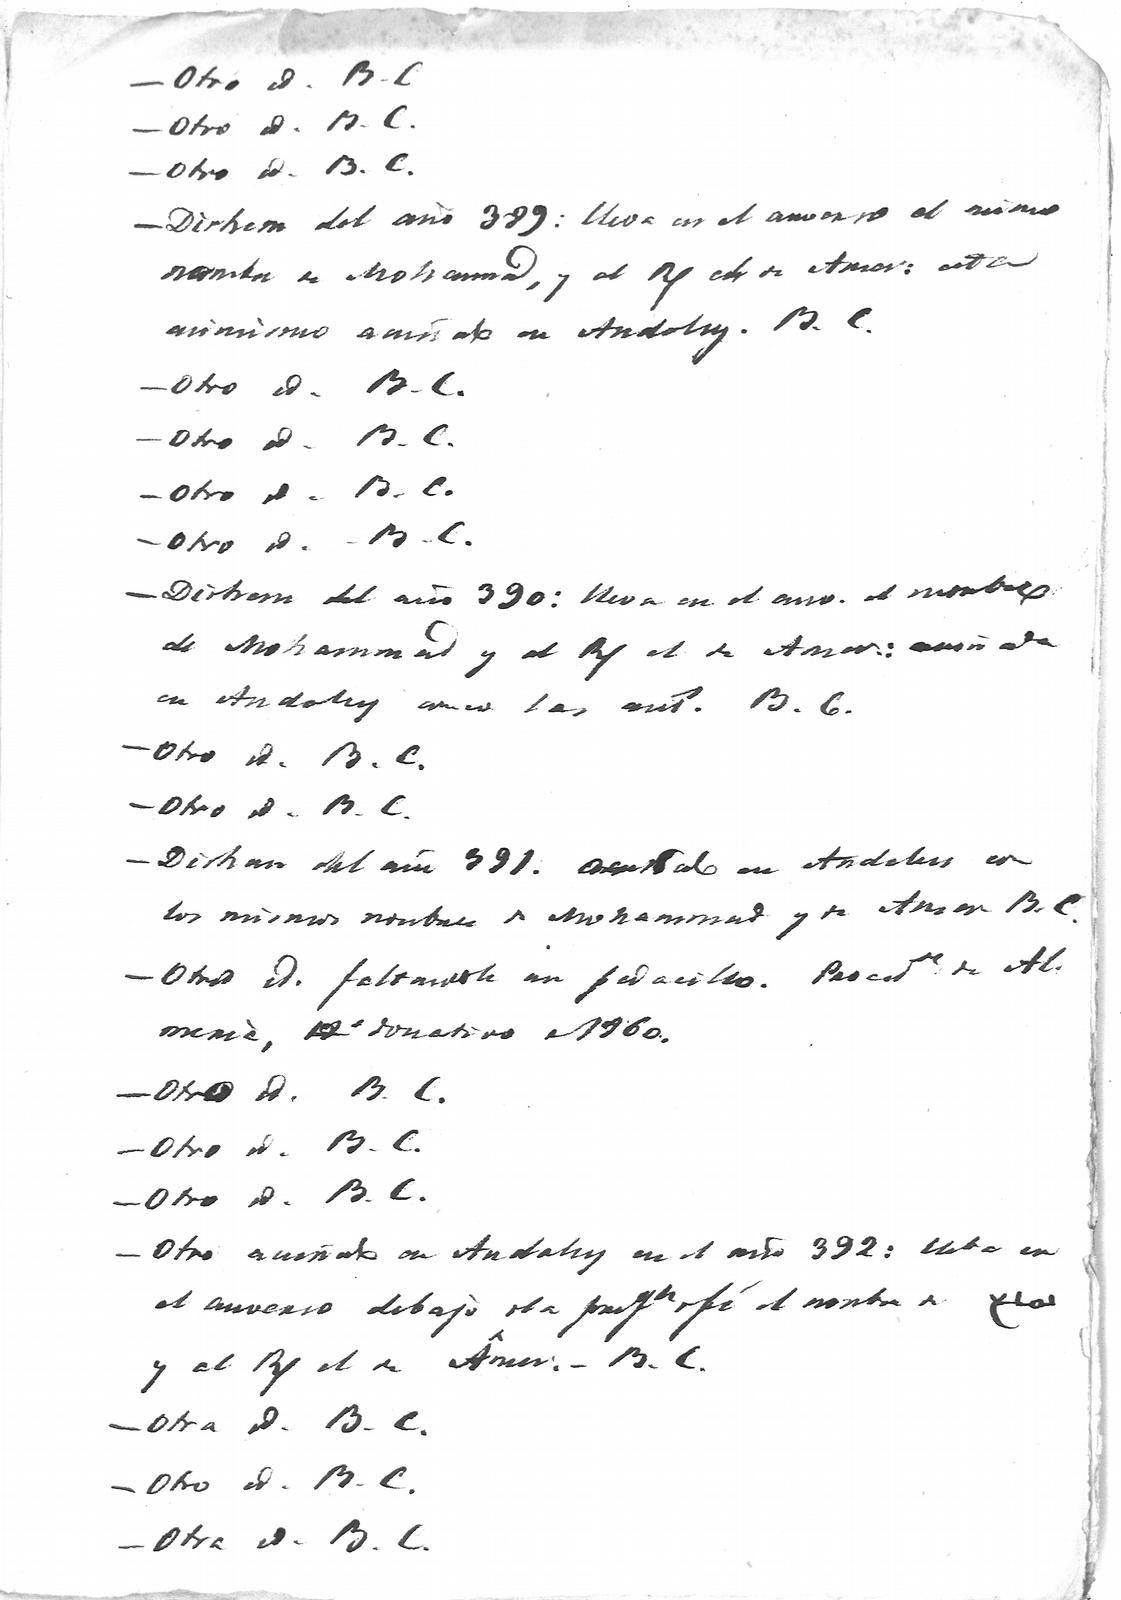 — Otro id. B. C
— Otro id. B. C.
— Otro id. B. C.
— Dirhem del año 389: lleva en el anverso el mismo
nombre de Mohammad, y al R/ el de Amer: esta
asimismo acuñado en Andalus. B. C.
— Otro id. B. C.
— Otro id. B. C.
— Otro id. B. C.
— Otro id. B. C.
— Dirhem del año 390: lleva en el anv. el nombre
de Mohammad y al R/ el de Amer: acuñada
en Andalus como las antˢ. B. C.
— Otro id. B. C.
— Otro id. B. C.
— Dirhem del año 391. acuñado en Andalus con
los mismos nombres de Mohammad y de Amer B. C.
— Otro id. faltandole un pedacillo. Procedᵗᵉ de Al-
meria, donativo 1860.
— Otro id. B. C.
— Otro id. B. C.
— Otro id. B. C.
— Otro acuñado en Andalus en el año 392: lleba en
el anverso debajo de la el nombre de
y al R/ el de Âmer. – B. C.
— Otra id. B. C.
— Otro id. B. C.
— Otra id. B. C.